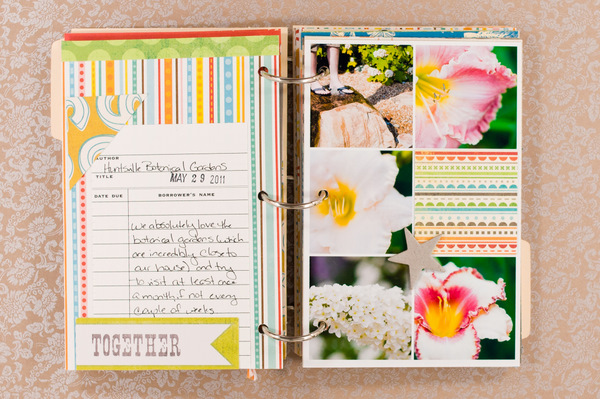 AUTHOR
Huntsville Botanical Gardens
TITLE
MAY 29 2011
DATE DUE BORROWER'S NAME
we absolutely love the
botanical gardens (which
are incredibly close to
our house) and try
to visit at least once
a month, if not every
couple of weeks
TOGETHER